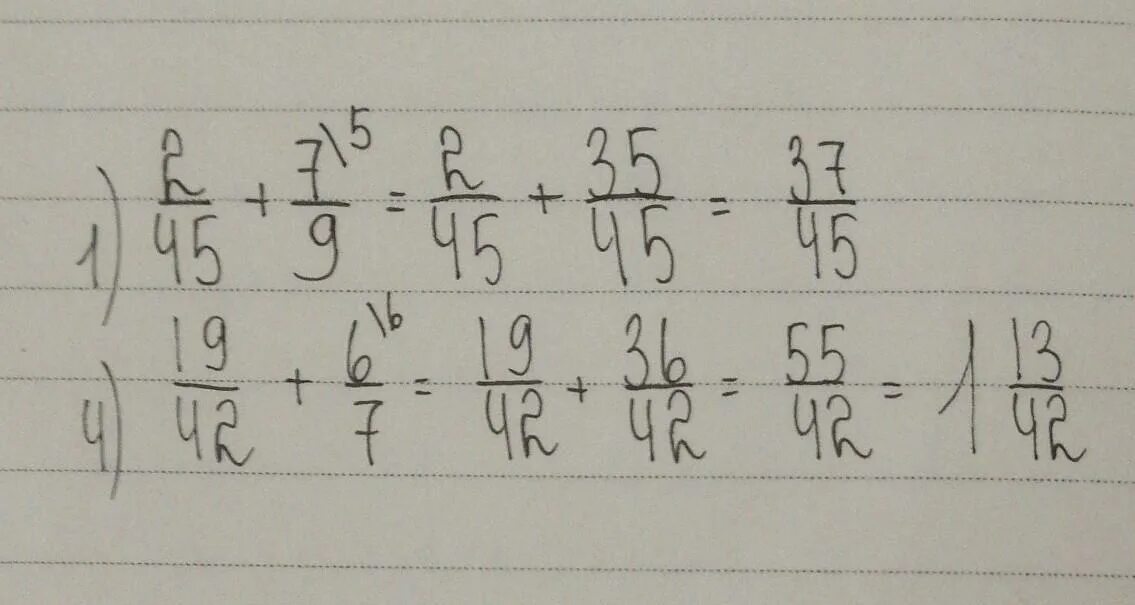 1) 2/45 + 7\5/9 = 2/45 + 35/45 = 37/45
4) 19/42 + 6\6/7 = 19/42 + 36/42 = 55/42 = 1 13/42